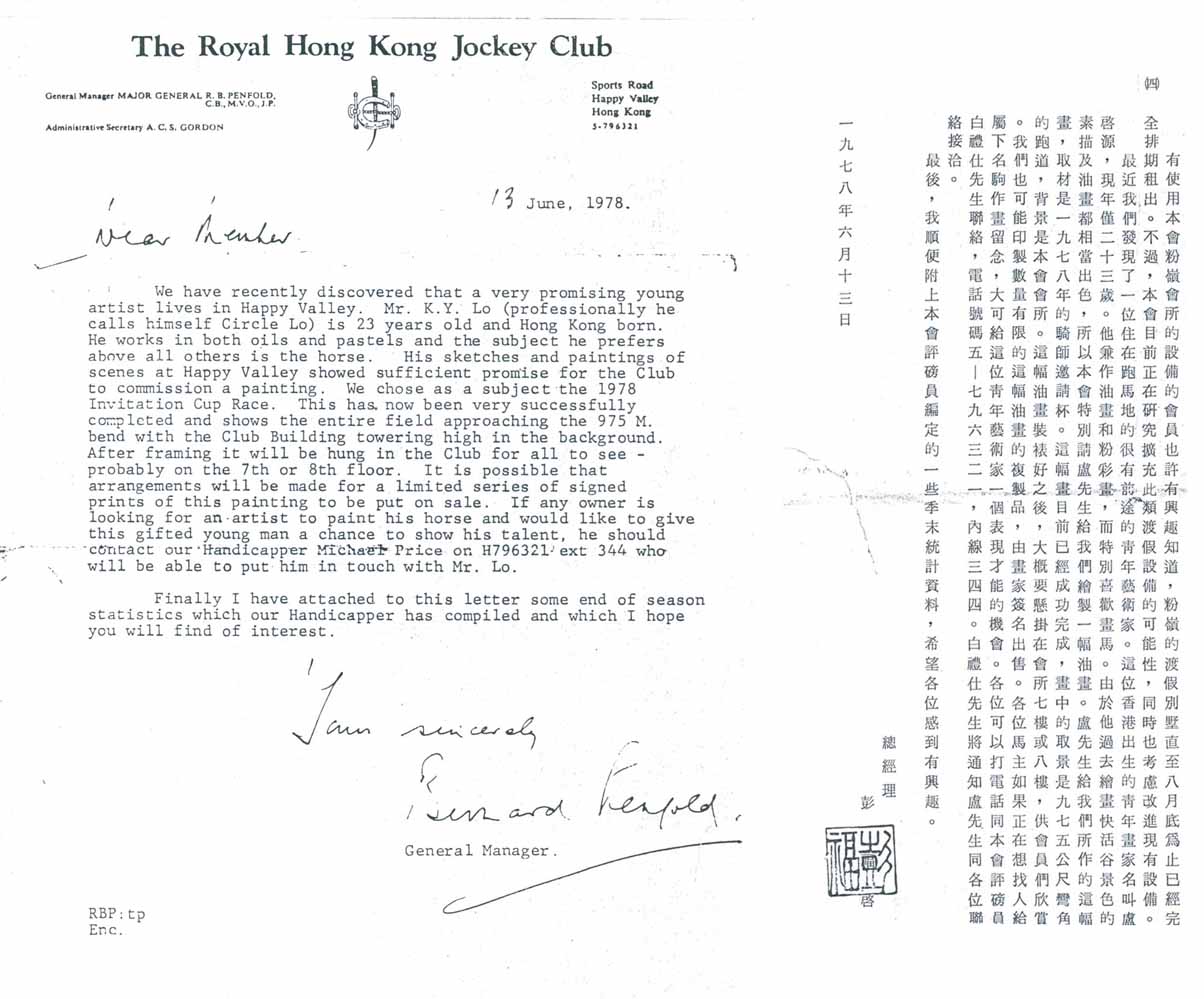 The Royal Hong Kong Jockey Club
General Manager MAJOR GENERAL R. B. PENFOLD,
C.B., M.V.O., J.P.
Administrative Secretary A. C. S. GORDON
Sports Road
Happy Valley
Hong Kong
5-796321
13 June, 1978.
Dear Member
We have recently discovered that a very promising young
artist lives in Happy Valley. Mr. K.Y. Lo (professionally he
calls himself Circle Lo) is 23 years old and Hong Kong born.
He works in both oils and pastels and the subject he prefers
above all others is the horse. His sketches and paintings of
scenes at Happy Valley showed sufficient promise for the Club
to commission a painting. We chose as a subject the 1978
Invitation Cup Race. This has now been very successfully
completed and shows the entire field approaching the 975 M.
bend with the Club Building towering high in the background.
After framing it will be hung in the Club for all to see -
probably on the 7th or 8th floor. It is possible that
arrangements will be made for a limited series of signed
prints of this painting to be put on sale. If any owner is
looking for an artist to paint his horse and would like to give
this gifted young man a chance to show his talent, he should
contact our Handicapper Michael Price on H796321 ext 344 who
will be able to put him in touch with Mr. Lo.
Finally I have attached to this letter some end of season
statistics which our Handicapper has compiled and which I hope
you will find of interest.
Yours sincerely
Bernard Penfold.
General Manager.
RBP:tp
Enc.
㈣
有使用本會粉嶺會所的設備的會員也許有興趣知道,粉嶺的渡假別墅直至八月底爲止已經完
全排期租出。不過,本會目前正在研究擴充此類渡假設備的可能性,同時也考慮改進現有設備。
最近我們發現了一位住在跑馬地的很有前途的青年藝術家。這位香港出生的青年畫家名叫盧
啓源,現年僅二十三歲。他兼作油畫和粉彩畫,而特別喜歡畫馬。由於他過去繪畫快活谷景色的
素描及油畫都相當出色,所以本會特別請盧先生給我們繪製一幅油畫。盧先生給我們所作的這幅
畫,取材是一九七八年的騎師邀請杯。這幅畫目前已經成功完成,畫中的取景是九七五公尺彎角
的跑道,背景是本會會所。這幅油畫裝裱好之後,大概要懸掛在會所七樓或八樓,供會員們欣賞
。我們也可能印製數量有限的這幅油畫的複製品,由畫家簽名出售。各位馬主如果正在想找人給
屬下名駒作畫留念,大可給這位青年藝術家一個表現才能的機會。各位可以打電話同本會評磅員
白禮仕先生聯絡,電話號碼五|七九六三二一,內線三四四。白禮仕先生將通知盧先生同各位聯
絡接洽。
最後,我順便附上本會評磅員編定的一些季末統計資料,希望各位感到有興趣。
總經理
彭
彭福
啓
一九七八年六月十三日